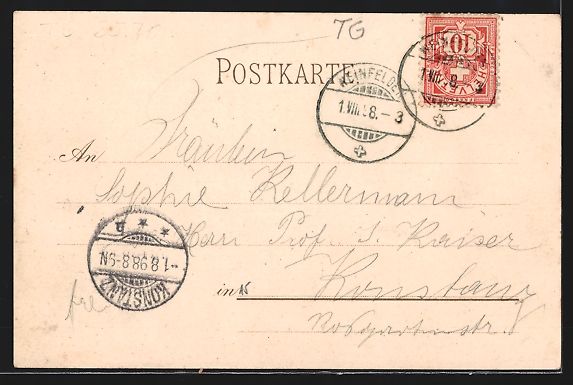 TG
POSTKARTE
WEINFELDEN
1.VIII.98.-3
10
HELVETIA
1.VIII.98.-3
An Fräulein
Sophie Kellermann
Herrn Prof. J. Kaiser
in Konstanz
Rosgartenstr.
KONSTANZ
-1.8.98.8-9N